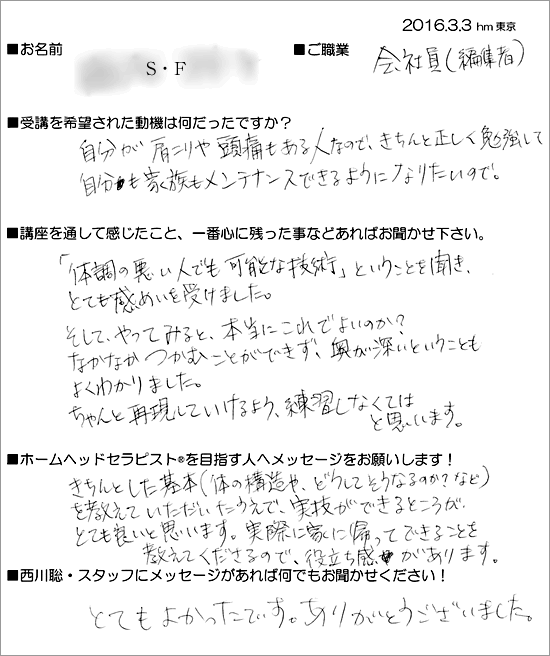 2016.3.3 hm東京
■お名前
S・F
■ご職業
会社員(編集者)
■受講を希望された動機は何だったですか？
自分が肩こりや頭痛もある人なので、きちんと正しく勉強して
自分も家族もメンテナンスできるようになりたいので。
■講座を通して感じたこと、一番心に残った事などあればお聞かせ下さい。
「体調の悪い人でも可能な技術」ということを聞き、
とても感めいを受けました。
そして、やってみると、本当にこれでよいのか？
なかなかつかむことができず、奥が深いということも
よくわかりました。
ちゃんと再現していけるよう、練習しなくては
と思います。
■ホームヘッドセラピスト®を目指す人へメッセージをお願いします！
きちんとした基本(体の構造や、どうしてそうなるのか？など)
を教えていただいたうえで、実技ができるところが、
とても良いと思います。実際に家に帰ってできることを
教えてくださるので、役立ち感があります。
■西川聡・スタッフにメッセージがあれば何でもお聞かせください！
とてもよかったです。ありがとうございました。